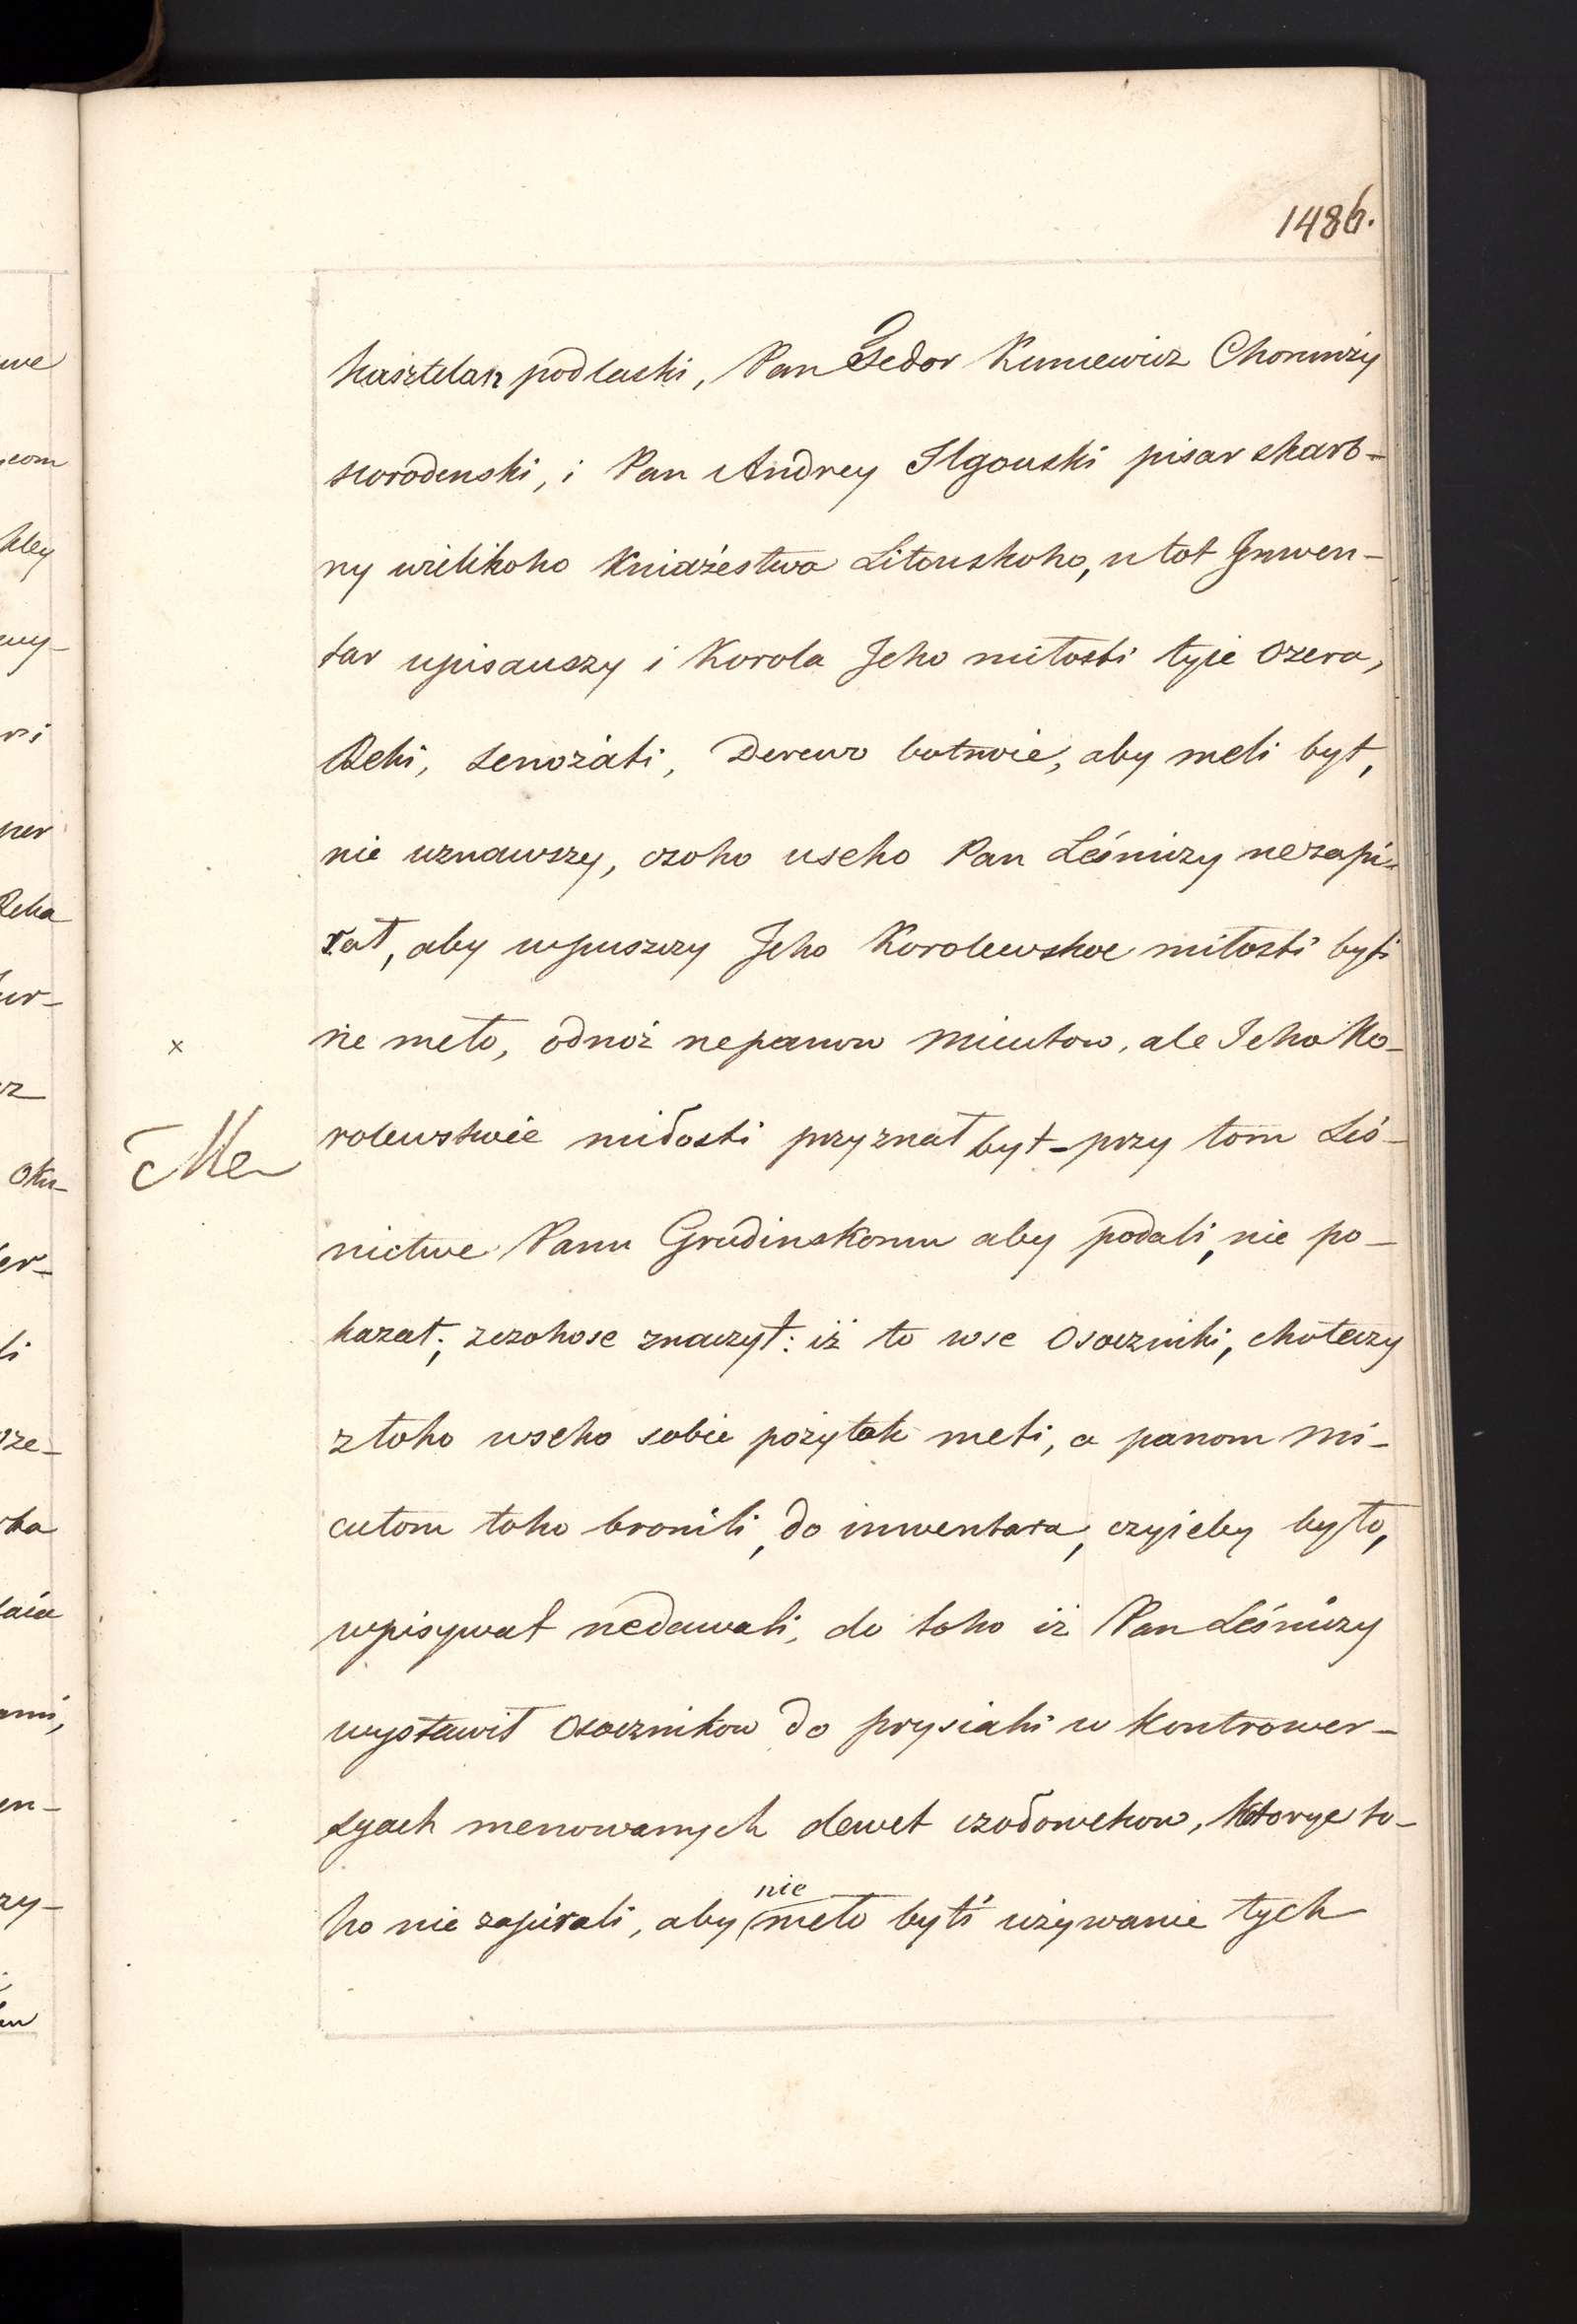 1486.
kasztelan podlaski, Pan Fedor Kuncewicz Chorunży
Horodenski, i Pan Andrey Ilgouski pisar skarb-
ny wielikoho Kniażestwa Litouskoho, u tot Inwen-
tar upisauszy i Korola Jeho miłosti tyie Ozera,
Reki, senożati, Derewo bołnoie, aby meli byt,
nie uznawszy, czoho useho Pan Leśniczy nezapi-
rał, aby w puszczy Jeho Korolewskoe miłosti byti
ne meło, odnoż nepanow Micutow, ale Jeho Ko-
rolewskoie miłosti przyznał był - przy tom Leś-
nictwe Panu Grudinskomu aby podali, nie po-
kazał; zczohose znaczył: iż to wse Osoczniki, choteczy
z toho wseho sobie pożytok meti, a panom Mi-
cutom toho bronili, do inwentara, czyieby było,
wpisywat nedawali, do toho iż Pan Leśniczy
wystawił Osocznikow do prysiahi w kontrower-
syach menowanych dewet czołowekow, kotorye to-
ho nie zapirali, aby nie meło byti używanie tych
x
Me